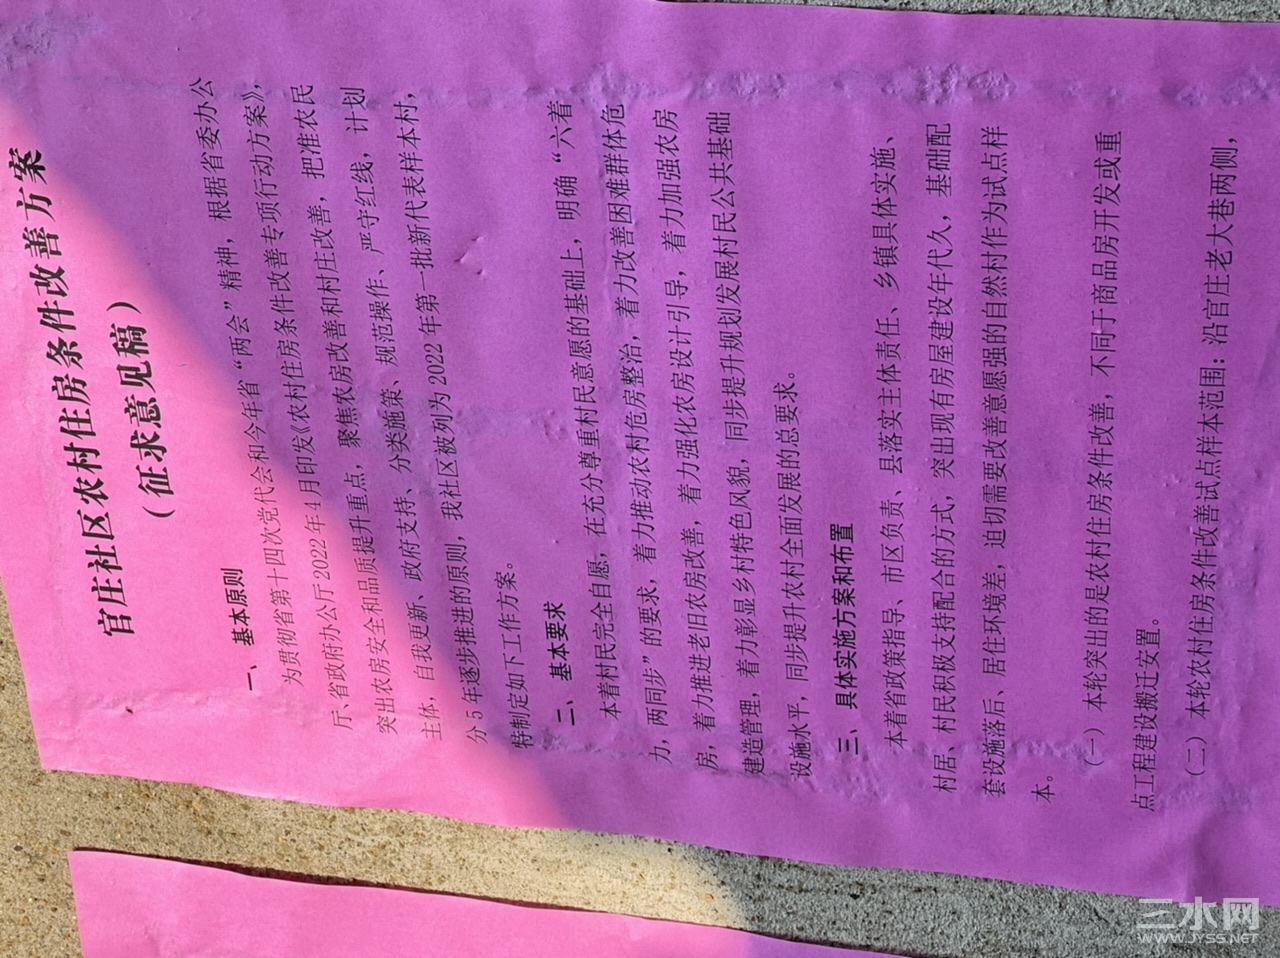 官庄社区农村住房条件改善方案
（征求意见稿）
一、基本原则
为贯彻省第十四次党代会和今年省“两会”精神，根据省委办公
厅、省政府办公厅2022年4月印发《农村住房条件改善专项行动方案》，
突出农房安全和品质提升重点，聚焦农房改善和村庄改善，把准农民
主体，自我更新、政府支持、分类施策、规范操作、严守红线，计划
分5年逐步推进的原则，我社区被列为2022年第一批新代表样本村，
特制定如下工作方案。
二、基本要求
本着村民完全自愿，在充分尊重村民意愿的基础上，明确“六着
力，两同步”的要求，着力推动农村危房整治，着力改善困难群体危
房，着力推进老旧农房改善，着力强化农房设计引导，着力加强农房
建造管理，着力彰显乡村特色风貌，同步提升规划发展村民公共基础
设施水平，同步提升农村全面发展的总要求。
三、具体实施方案和布置
本着省政策指导、市区负责、县落实主体责任、乡镇具体实施、
村居、村民积极支持配合的方式，突出现有房屋建设年代久，基础配
套设施落后、居住环境差，迫切需要改善意愿强的自然村作为试点样
本。
（一）本轮突出的是农村住房条件改善，不同于商品房开发或重
点工程建设搬迁安置。
（二）本轮农村住房条件改善试点样本范围：沿官庄老大巷两侧，
三水网
WWW.JYSS.NET